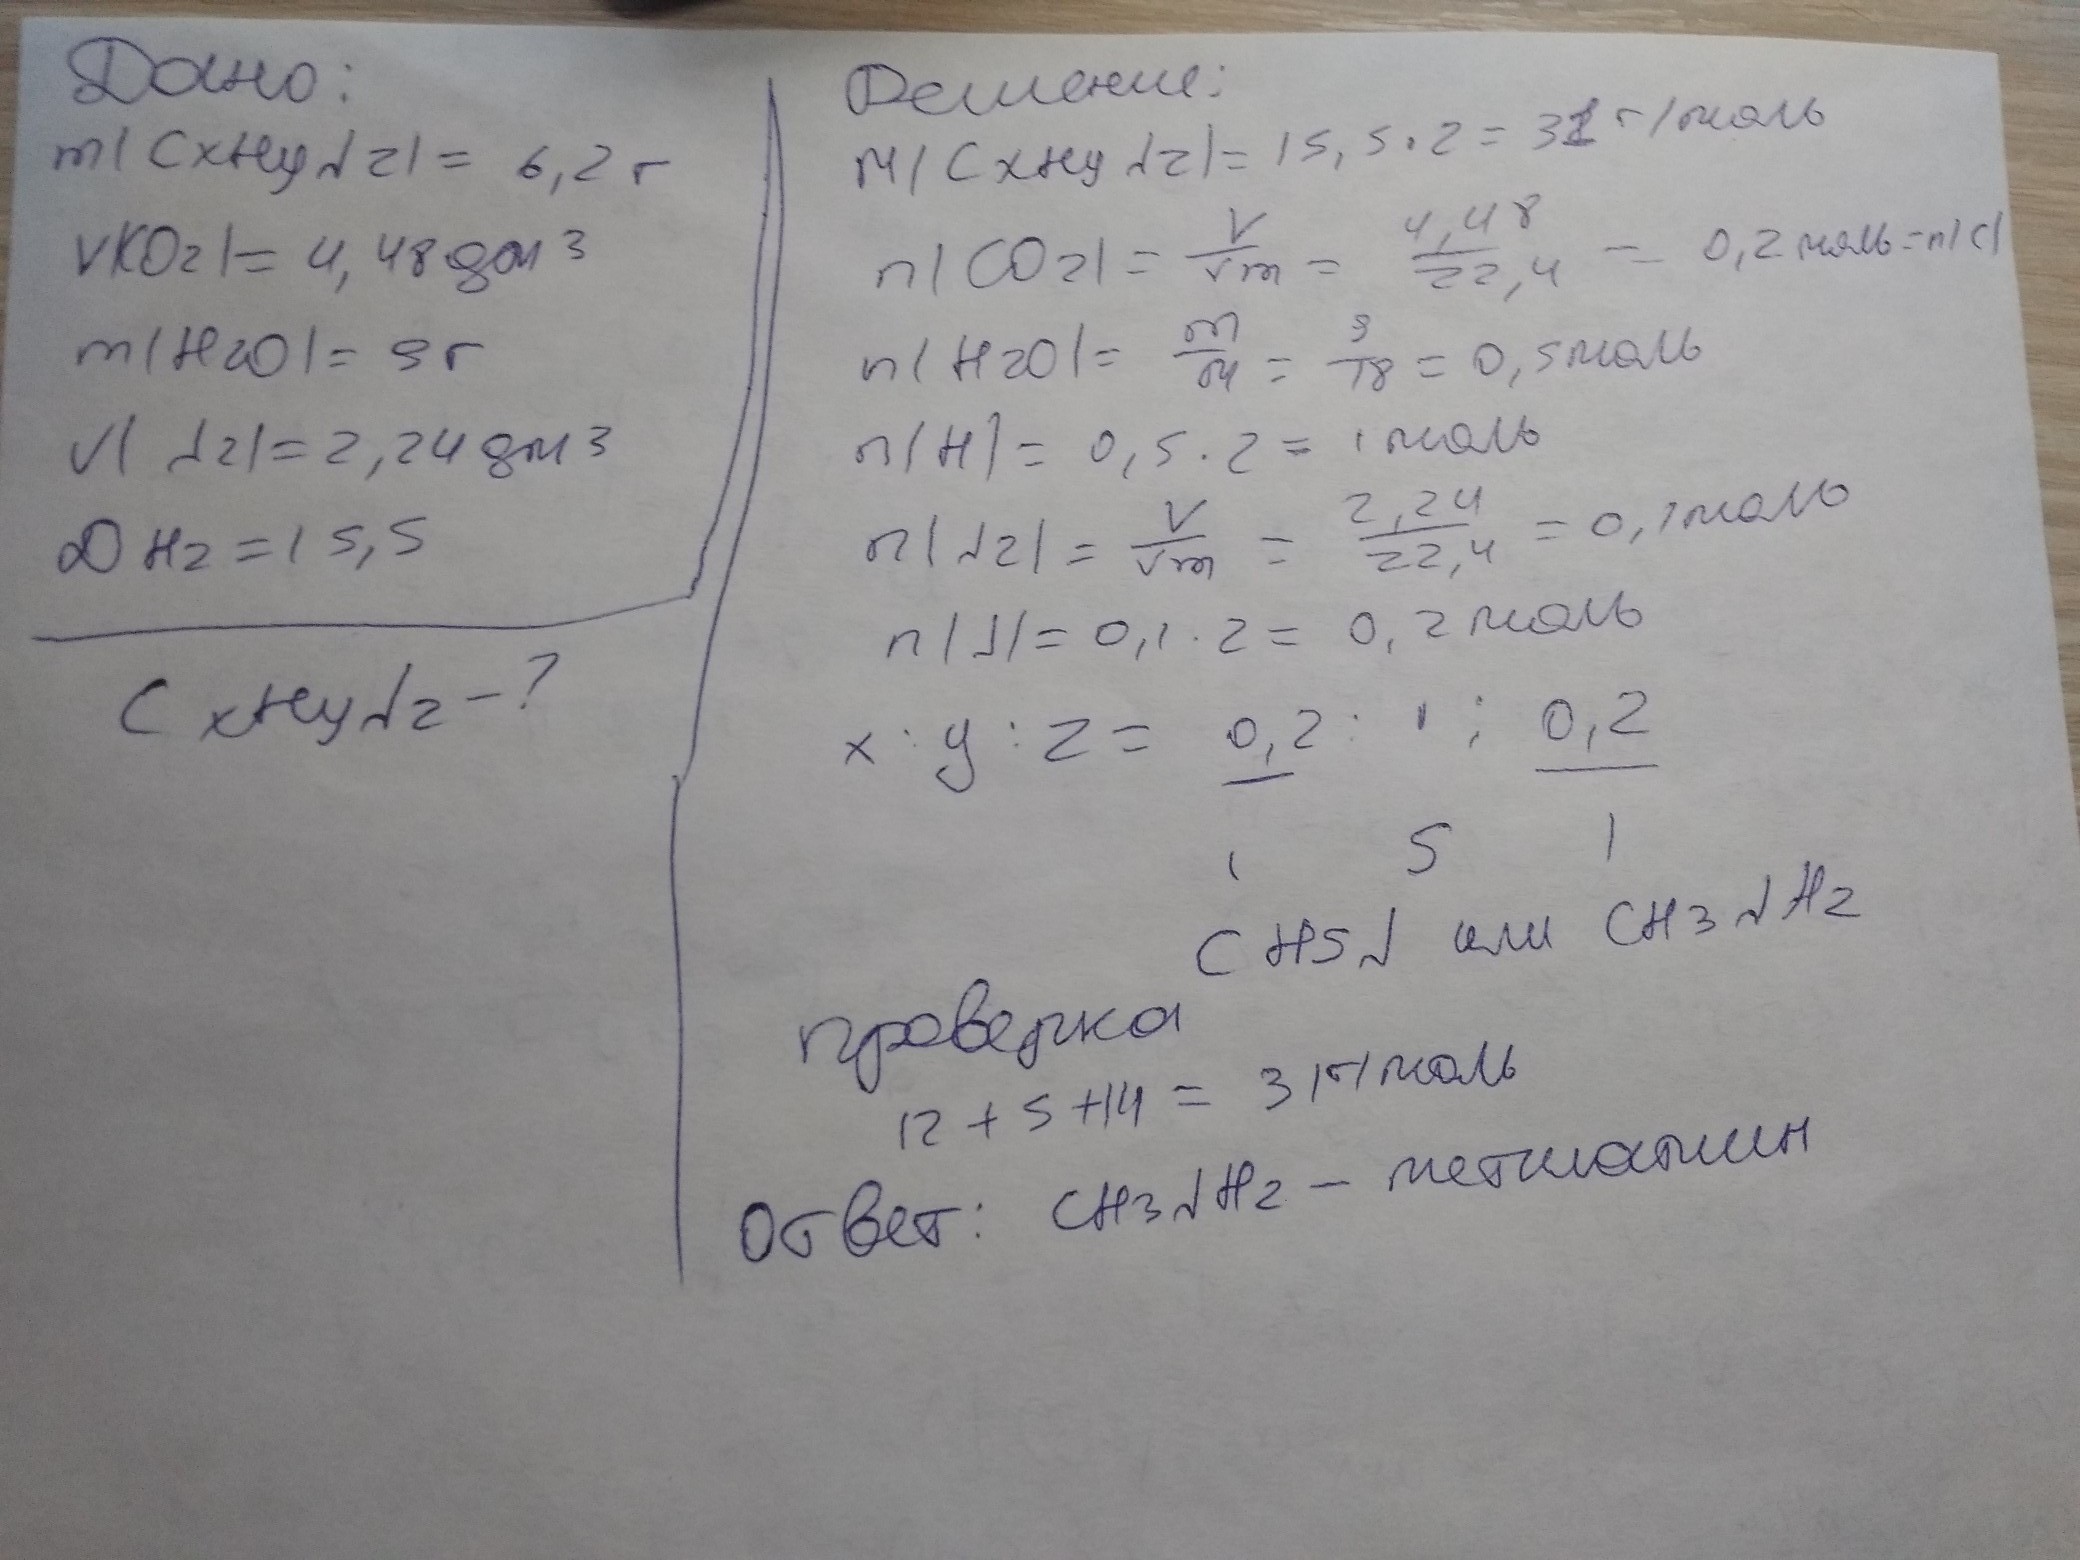 Дано:
m(CxHyNz) = 6,2 г
V(CO2) = 4,48 дм3
m(H2O) = 9 г
V(N2) = 2,24 дм3
DH2 = 15,5
CxHyNz - ?
Решение:
M(CxHyNz) = 15,5 · 2 = 31 г/моль
n(CO2) = V/Vm = 4,48/22,4 = 0,2 моль = n(C)
n(H2O) = m/M = 9/18 = 0,5 моль
n(H) = 0,5 · 2 = 1 моль
n(N2) = V/Vm = 2,24/22,4 = 0,1 моль
n(N) = 0,1 · 2 = 0,2 моль
x : y : z = 0,2 : 1 : 0,2
1 5 1
CH5N или CH3NH2
проверка
12 + 5 + 14 = 31 г/моль
Ответ: CH3NH2 – метиламин